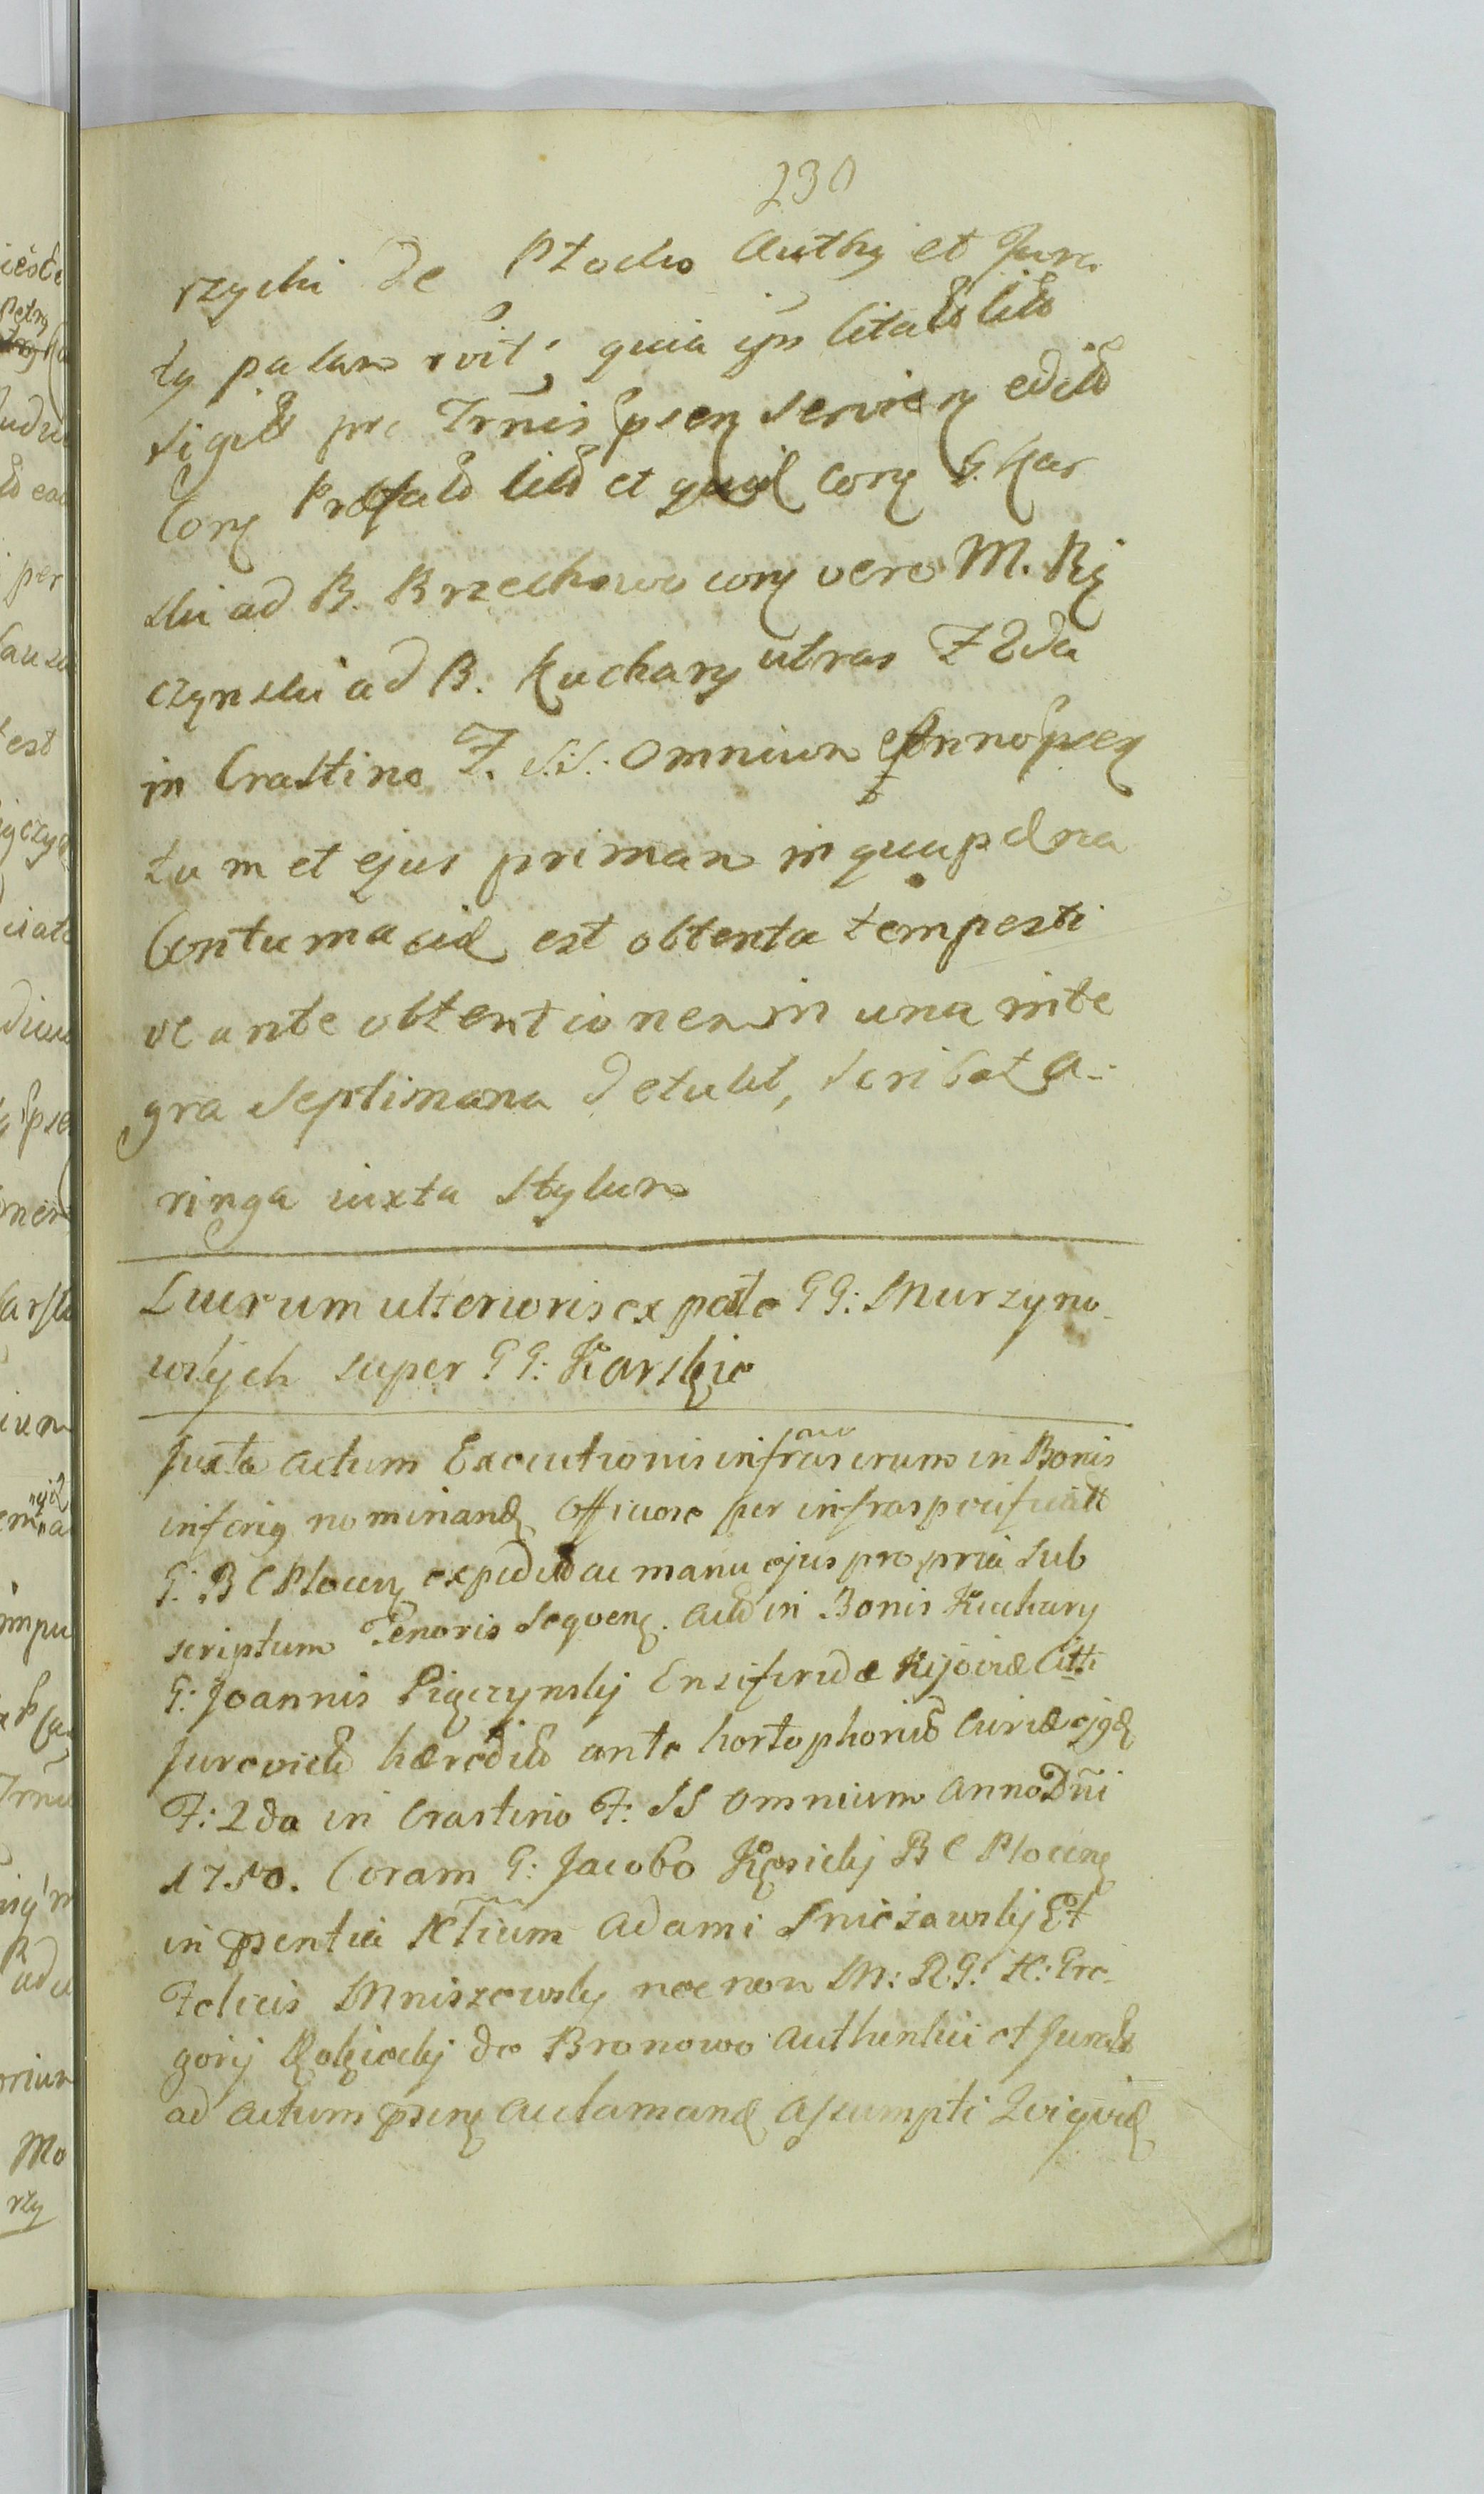 230
rzycki de Płocko Authcy et Jura
ty palam rvit, quia ipn litato lito
sigill pre Trnis psen servien edito
Corq Præfato lito et quil corq G. Kar
ski ad B. Brzechowo corq vero M. Pig
czynski ad B. Kuchary utras F 2da
in Crastino F. S.S. Omnium Anno psen
tum et ejus priman in qua pdna
Contumacia est obtenta tempesti
ve ante obtentionem in una inte
gra Septimana detulit, Scribat A-
ringa iuxta Stylum
Lucrum ulterioris ex pate GG: Murzyno-
wskych super GG: Karskie
Juxta actum Executionis infrascrum in Bonis
inferiq nominand officiose per infraspecificatt
G: B C Plocen expeditto ac manu ejus propria sub
scriptum Tenoris Seqven. Actto in Bonis Kuchary
G: Joannis Pigczynskij Ensiferidæ Kijoviæ Citti
Jurevicto hæredito ante hortophoriu Curiæ ejgd
F: 2da in Crastino F: SS omnium anno Dni
1750. Coram G: Jacobo Kęsickij B C Plocen
in psentia Ntium Adami Sniezawskij Et
Felicis Mniszewsky nec non M: R G: H: Gre-
gorij Rokickij de Bronowo Authentici et Jurati
ad actum psen acclamand assumpti Qui qvid